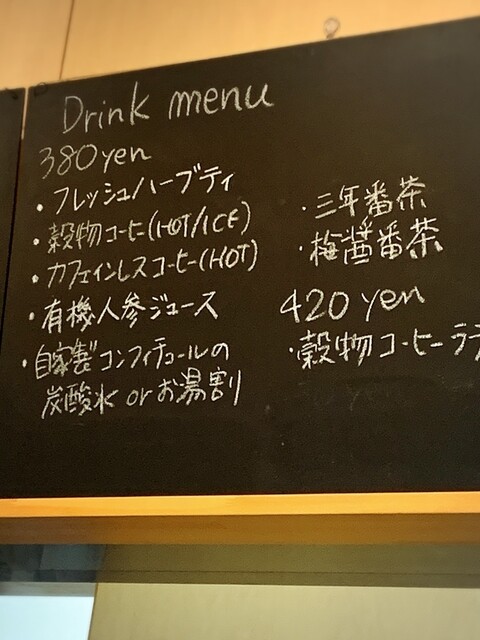 Drink menu
380yen
・フレッシュハーブティ
・穀物コーヒー(HOT/ICE)
・カフェインレスコーヒー(HOT)
・有機人参ジュース
・自家製コンフィチュールの
炭酸水 or お湯割
・三年番茶
・梅醤番茶
420 yen
・穀物コーヒーラテ